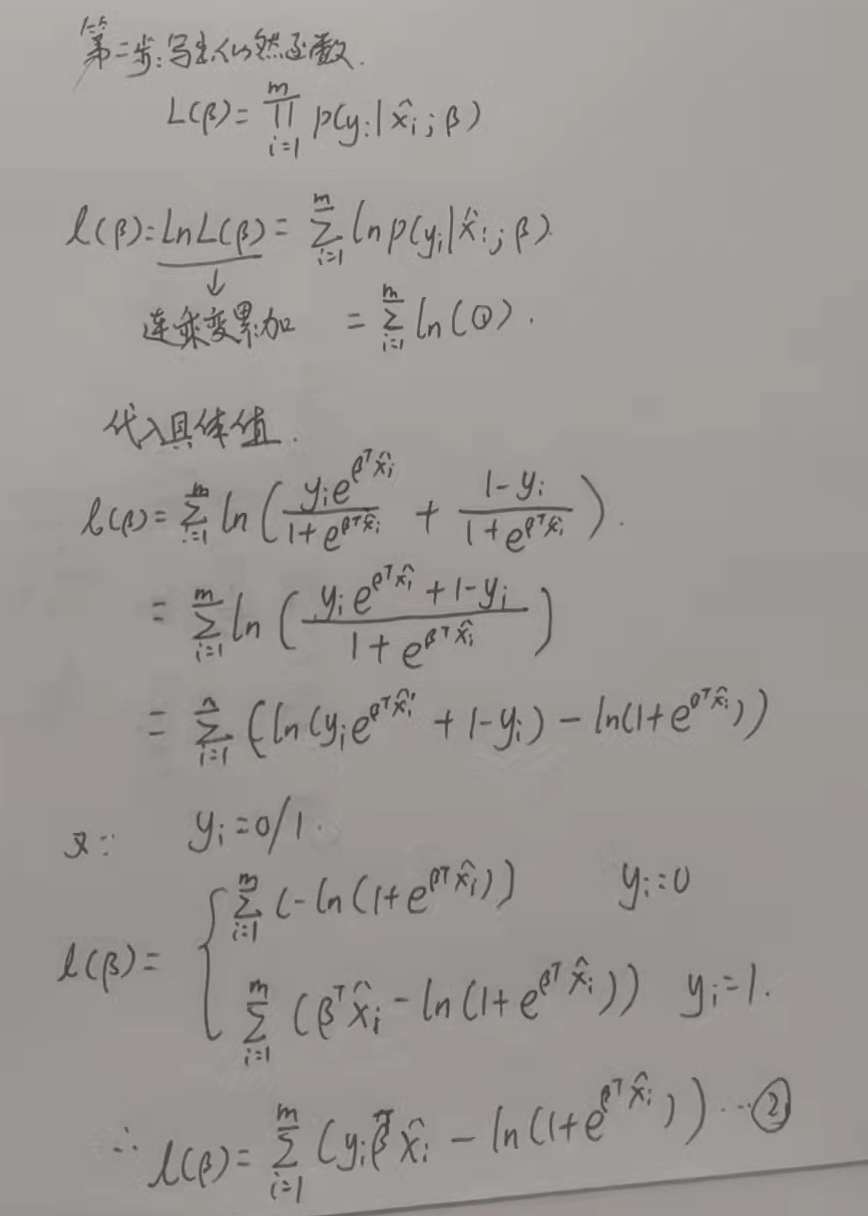 第二步:写出似然函数.
L(β)=∏_{i=1}^{m} p(y_i|x̂_i;β)
ℓ(β)=LnL(β)=∑_{i=1}^{m} ln p(y_i|x̂_i;β).
↓
连乘变累加 =∑_{i=1}^{m} ln(①).
代入具体值.
ℓ(β)=∑_{i=1}^{m} ln(\frac{y_i e^{β^T x̂_i}}{1+e^{β^T x̂_i}} + \frac{1-y_i}{1+e^{β^T x̂_i}}).
=∑_{i=1}^{m} ln(\frac{y_i e^{β^T x̂_i}+1-y_i}{1+e^{β^T x̂_i}})
=∑_{i=1}^{n} (ln(y_i e^{β^T x̂_i}+1-y_i)-ln(1+e^{β^T x̂_i}))
又∵ y_i=0/1.
∑_{i=1}^{m} (-ln(1+e^{β^T x̂_i})) y_i=0
ℓ(β)= {
∑_{i=1}^{m} (β^T x̂_i-ln(1+e^{β^T x̂_i})) y_i=1.
∴ ℓ(β)=∑_{i=1}^{m} (y_i β^T x̂_i-ln(1+e^{β^T x̂_i})) ···②